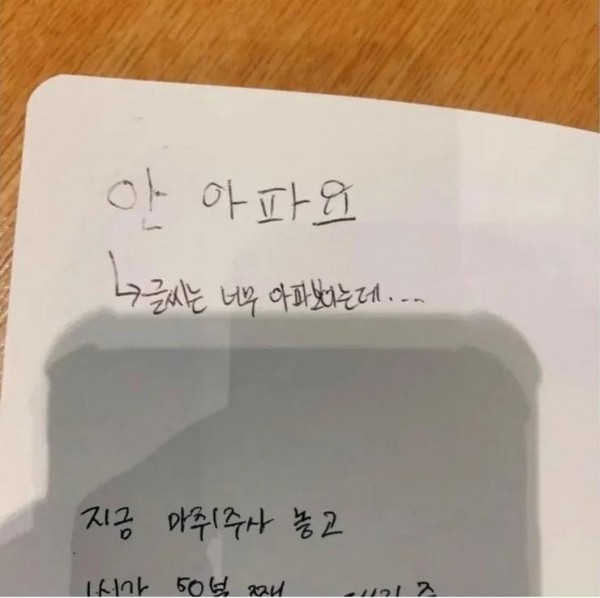 안 아파요
↳글씨는 너무 아파보이는데...
지금 마취주사 놓고
1시간 50분 째 대기 중